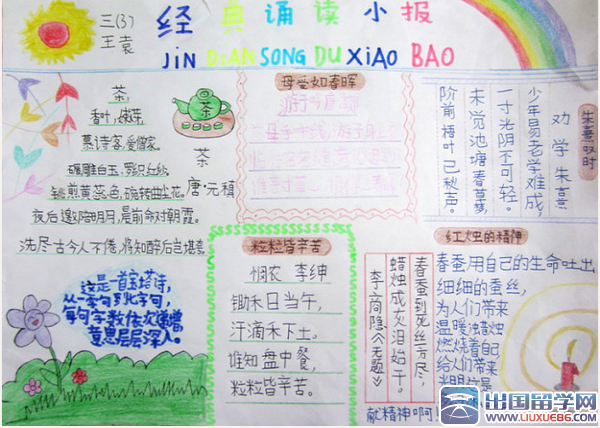 三(3)
王袁
经典诵读小报
JIN DIAN SONG DU XIAO BAO
茶
茶
香叶,嫩芽,
慕诗客,爱僧家。
碾雕白玉,罗织红纱。
铫煎黄蕊色,碗转曲尘花。
夜后邀陪明月,晨前命对朝霞。
洗尽古今人不倦,将知醉后岂堪夸
茶
唐·元稹
这是一首宝塔诗,
从一字句到七字句,
每句字数依次递增
意思层层深入。
母爱如春晖
游子吟 唐
粒粒皆辛苦
悯农 李绅
锄禾日当午,
汗滴禾下土。
谁知盘中餐,
粒粒皆辛苦。
朱熹叹时
劝学 朱熹
少年易老学难成,
一寸光阴不可轻。
未觉池塘春草梦,
阶前梧叶已秋声。
红烛的精神
春蚕到死丝方尽,
蜡烛成灰泪始干。
李商隐《无题》
春蚕用自己的生命吐出
细细的蚕丝,
为人们带来
温暖,蜡烛
燃烧着自己
给人们带来
光明,这是
献精神啊!
出国留学网
WWW.LIUXUE86.COM